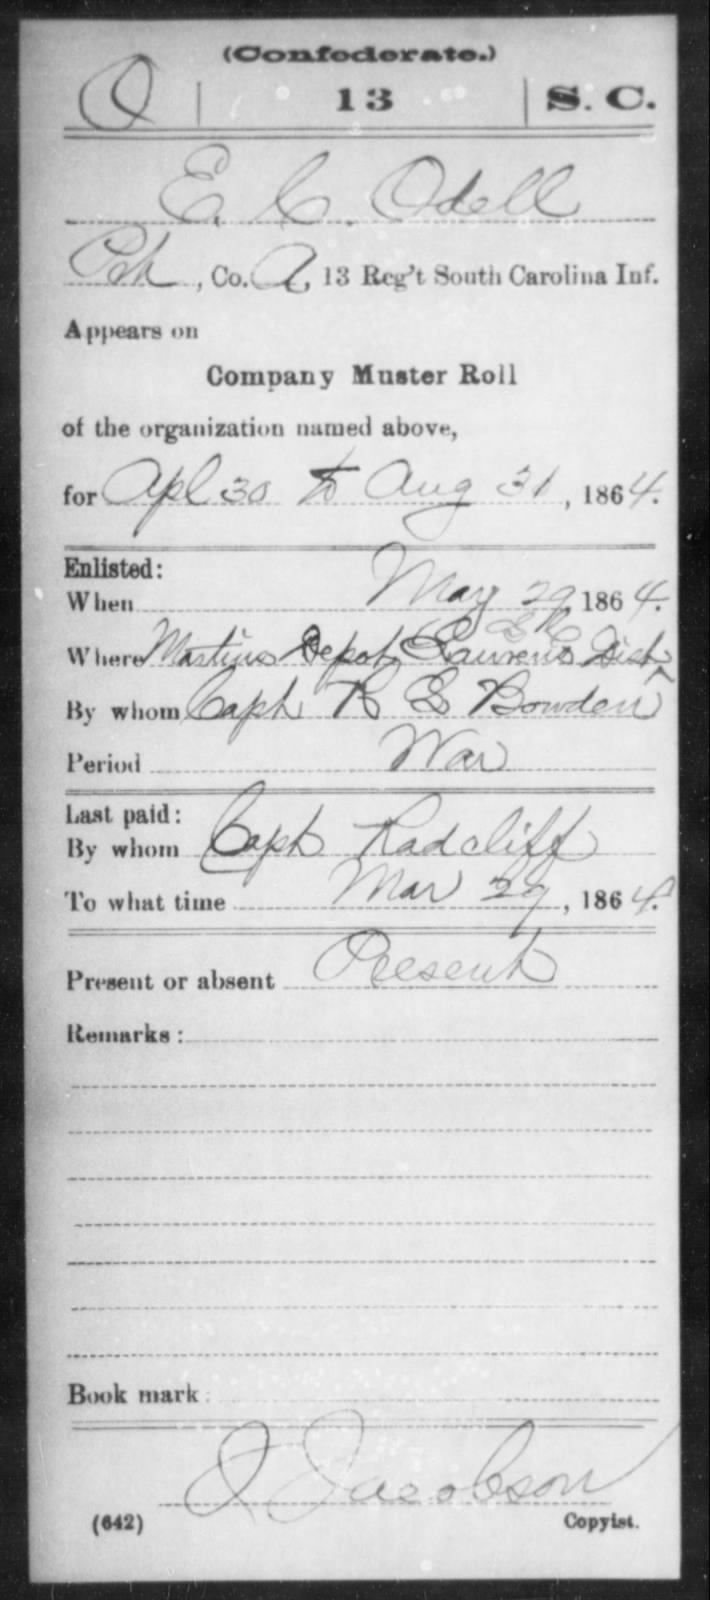 (Confederate.)
O | 13 | S. C.
E. C. Odell
Pvt, Co. A, 13 Reg't South Carolina Inf.
Appears on
Company Muster Roll
of the organization named above,
for Apl 30 to Aug 31, 1864.
Enlisted:
When May 29 1864.
S C
Where Martins Depot, Laurens Dist ^
By whom Capt R S Bowden
Period War
Last paid:
By whom Capt Radcliff
To what time Mar 29, 1864.
Present or absent Present
Remarks:
Book mark:
Jacobson
(642) Copyist.